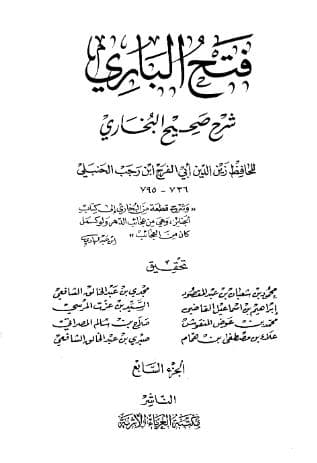 فتح الباري
شرح صحيح البخاري
للحافظ زين الدين أبي الفرج ابن رجب الحنبلي
٧٣٦ - ٧٩٥
« وشرح قطعة من البخاري إلى كتاب
الجنائز ، وهي من عجائب الدهر ولو كمل
كان من العجائب »
ابن عبد الهادي
تحقيق
محمود بن شعبان بن عبد المقصود مجدي بن عبد الخالق الشافعي
إبراهيم بن إسماعيل القاضي السيد بن عزت المرسي
محمد بن عوض المنقوش صلاح بن سالم المصراتي
علاء بن مصطفى بن همام صبري بن عبد الخالق الشافعي
الجزء السابع
الناشر
مكتبة الغرباء الأثرية